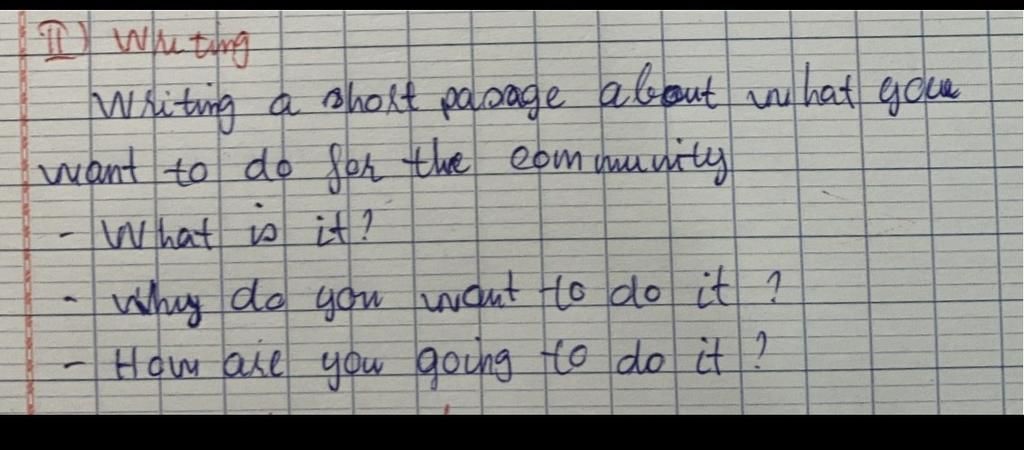 II) Writing
Writing a short passage about what you
want to do for the community
- What is it?
- Why do you want to do it ?
- How are you going to do it ?